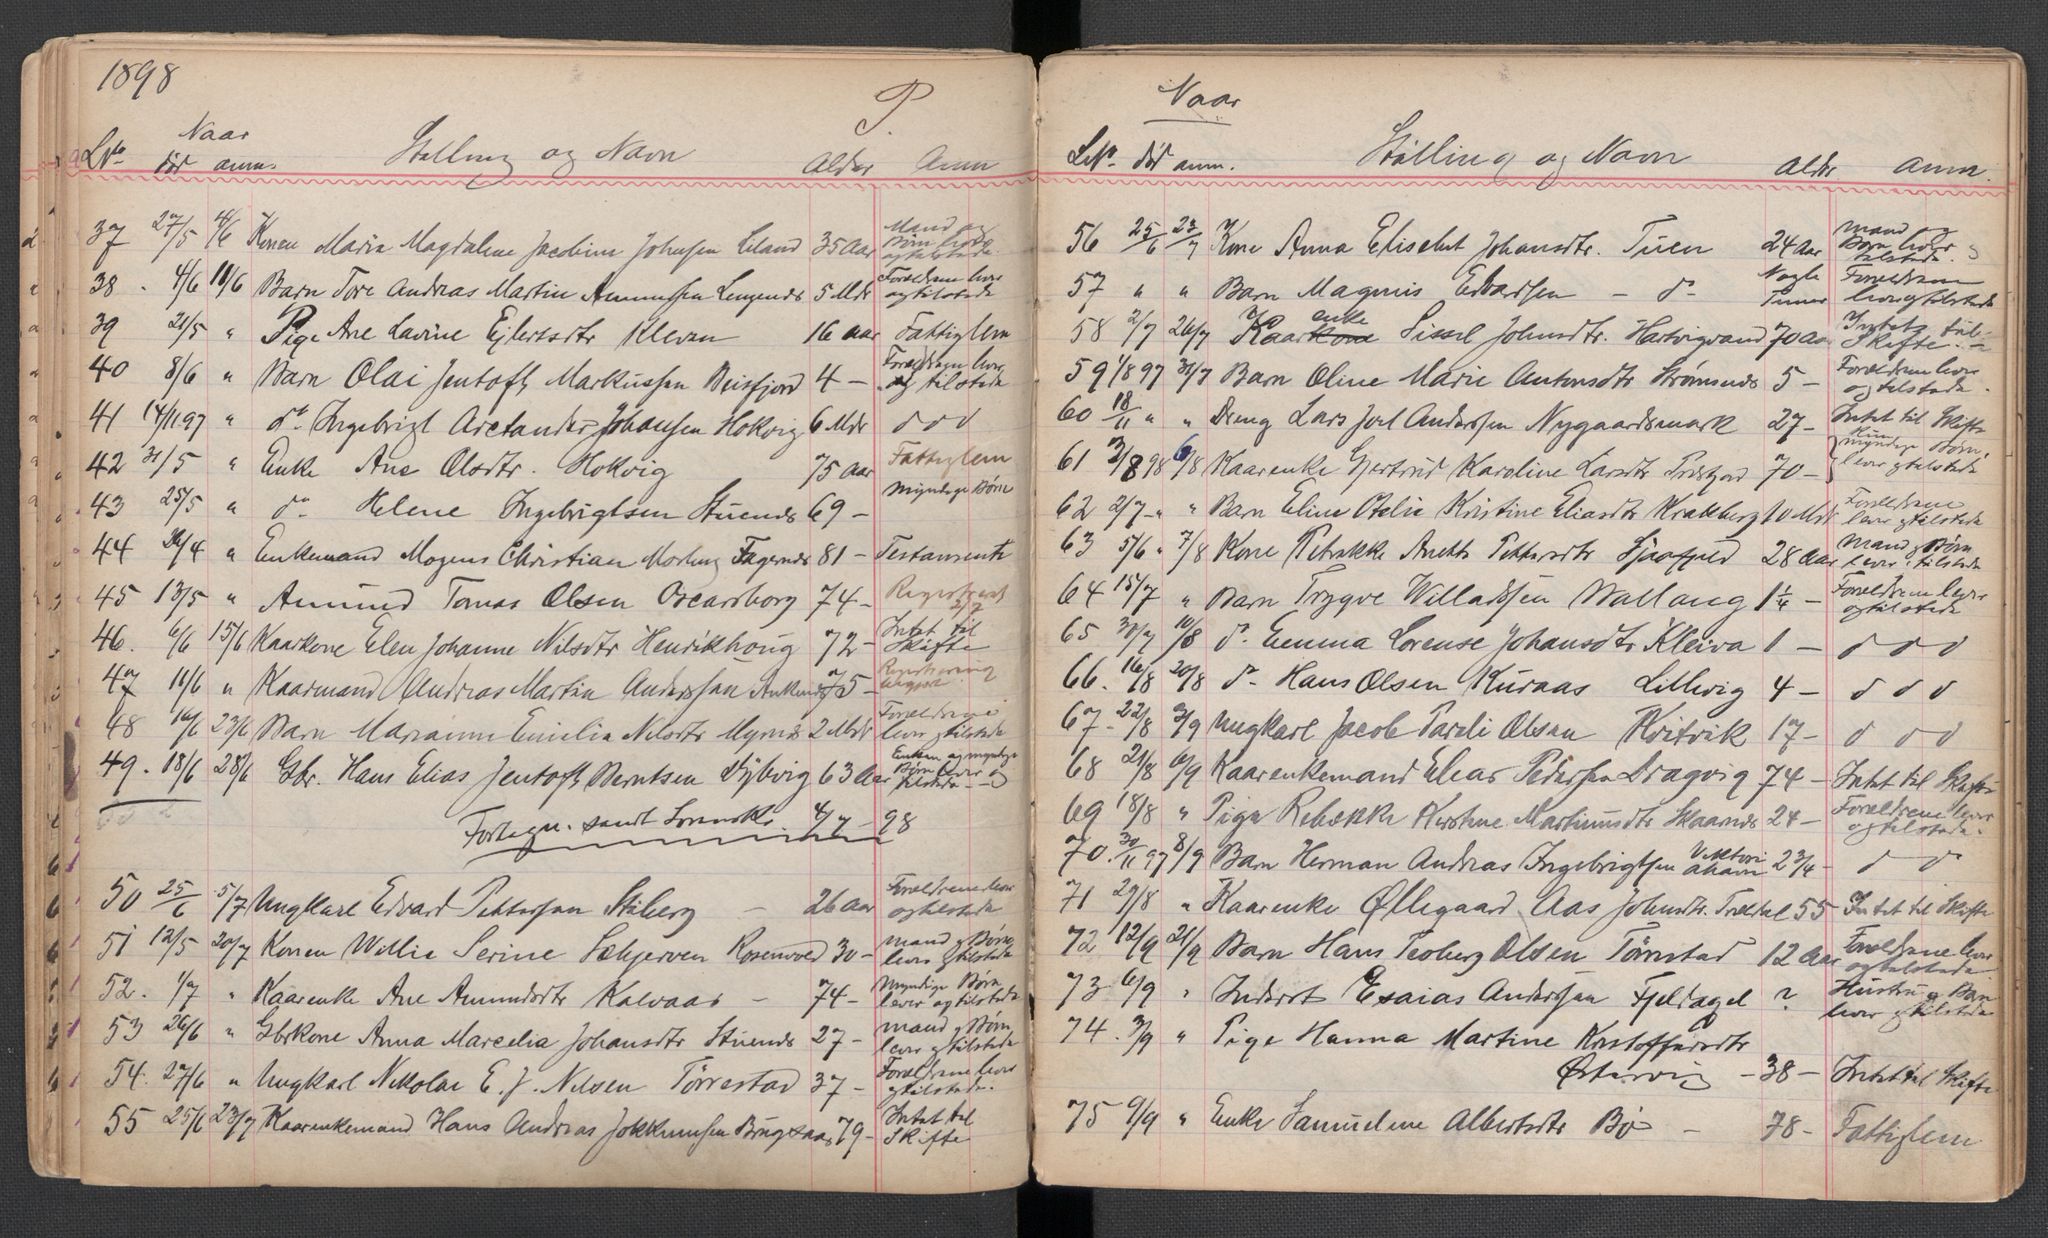 1898
P.
Naar
LNo død anm. Stilling og Navn Alder Anm
37 27/5 4/6 Konen Maria Magdalene Jacobine Johnsen Liland 35 Aar Mand og Børn lever og tilstede.
38 . 4/6 11/6 Barn Tore Andreas Martin Amundsen Lengenes 5 Mdr Forældrene lever og tilstede
39 21/5 " Pige Ane Lavine Ejlertsdtr Kleven 16 aar Fattiglem
40 8/6 " Barn Olai Jentoft Markussen Beisfjord 4 – Forældrene lever og tilstede
41 14/11 97 " do Ingebrigt Arctander Johansen Hokvig 6 Mdr d d d
42 31/5 " Enke Ane Olsdtr. Hokvig 75 aar Fattiglem
43 25/5 " do Helene Ingebrigtsen Stuenes 69 – Myndige Børn
44 26/4 " Enkemand Mogens Christian Fagernes 81 – Testamente
45 13/5 " Amund Tomas Olsen Oscarsborg 74 – 2/7
46. 6/6 15/6 Kaarkone Elen Johanne Nilsdtr Henrikhaug 72 – Intet til Skifte
47 11/6 " Kaarmand Andreas Martin Anderssen Ankenes 75 – Registrering
48 16/6 23/6 Barn Marianne Emilie Nilsdtr Myrnes 2 Mdr Forældrene lever og tilstede
49. 18/6 28/6 Gbr. Hans Elias Jentoft Berntsen Dybvig 63 Aar Enken og myndige Børn lever og tilstede
Fortegn. sendt Sorensk. 4/7 – 98
50 25/6 5/7 Ungkarl Edvard Pettersen Stiberg – 26 aar Forældrene lever og tilstede
51 12/5 20/7 Konen Willia Serine Schjerven Rosenvold 30 – mand og Børn lever og tilstede
52. 1/7 " Kaarenke Ane Amundsdtr Kalvaas – 74 – Myndige Børn lever og tilstede
53 26/6 " Gbrkone Anna Marcelia Johansdtr Stuenes 27 – mand og Børn lever og tilstede
54. 27/6 " Ungkarl Nikolai E. J. Nilsen Tørrestad 37 – Forældrene lever og tilstede.
55 25/6 23/7 Kaarenkemand Hans Andreas Jokkumsen 79 – Intet til Skifte
Naar
LNo død anm. Stilling og Navn Alder anm.
56 25/6 23/7 Kone Anna Elisebet Johansdtr. Tuen 24 Aar mand og Børn lever tilstede
57 " " Barn Magnus Edvardsen – do Nogle Timer Forældrene lever og tilstede
58 2/7 26/7 Kaarenke Sissel Johnsdtr. Hartvigvand 70 Aar Intet til Skifte. –
59 1/8 97 31/7 Barn Oline Marie Antonsdtr Strømsnes 5 – Forældrene lever og tilstede.
60 18/11 " " Dreng Lars Joel Anderssen Nygaardsmark 27 – Intet til Skifte
61 2/8 98 6/8 Kaarenke Gjertrud Karoline Larsdtr 70 – Kun myndige Børn, lever og tilstede
62 2/7 – " " Barn Eline Otelie Kristine Eliasdtr Krakberg 10 Mdr Forældrene lever og tilstede
63 5/6 . 7/8 Kone Petrikke Anette Pettersdtr 28 aar Mand og Børn lever tilstede
64 15/7 " Barn Trygve Willadssen Ballang 1 1/4 – Forældrene lever og tilstede
65 30/7 10/8 do Emma Lorense Johansdtr Kleiva 1 – d d d
66. 16/8 20/8 do Hans Olsen Kuraas Lillevig 4 – d d d
67 – 22/8 3/9 Ungkarl Jacob Pareli Olsen Kvitvik 17 – d d d
68 21/8 6/9 Kaarenkemand Elias Pedersen Dragvig 74 – Intet til Skifte
69 18/8 " Pige Rebekka Kirstine Martinusdtr Skaanes 24 – Forældrene lever og tilstede.
70. 30/11 97 8/9 Barn Herman Andreas Ingebrigtsen Viktoriahavn 2 3/4 – d d
71 29/8 " Kaarenke Øllegaard Aas Johnsdtr. Trældal 55 Intet til Skifte
72 12/9 21/9 Barn Hans Peoberg Olsen Tørrstad 12 Aar Forældrene lever og tilstede
73 6/9 " Inderst Esaias Anderssen Fjeldagel ? Hustru og Barn lever og tilstede
74. 3/9 " Pige Hanna Martine Kristoffersdtr
Østervig – 38 – Intet til Skifte
75 9/9 " Enke Samueline Albertsdtr Bø – 78 – Fattiglem